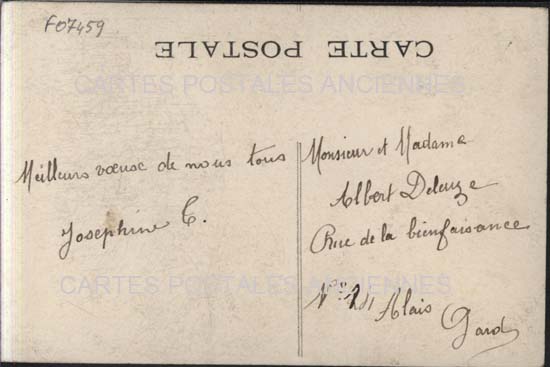 F07459
CARTE POSTALE
CARTES POSTALES ANCIENNES
Meilleurs vœux de nous tous
Josephine C.
Monsieur et Madame
Albert Deleuze
Rue de la bienfaisance
CARTES POSTALES ANCIENNES
N° Alais
Gard